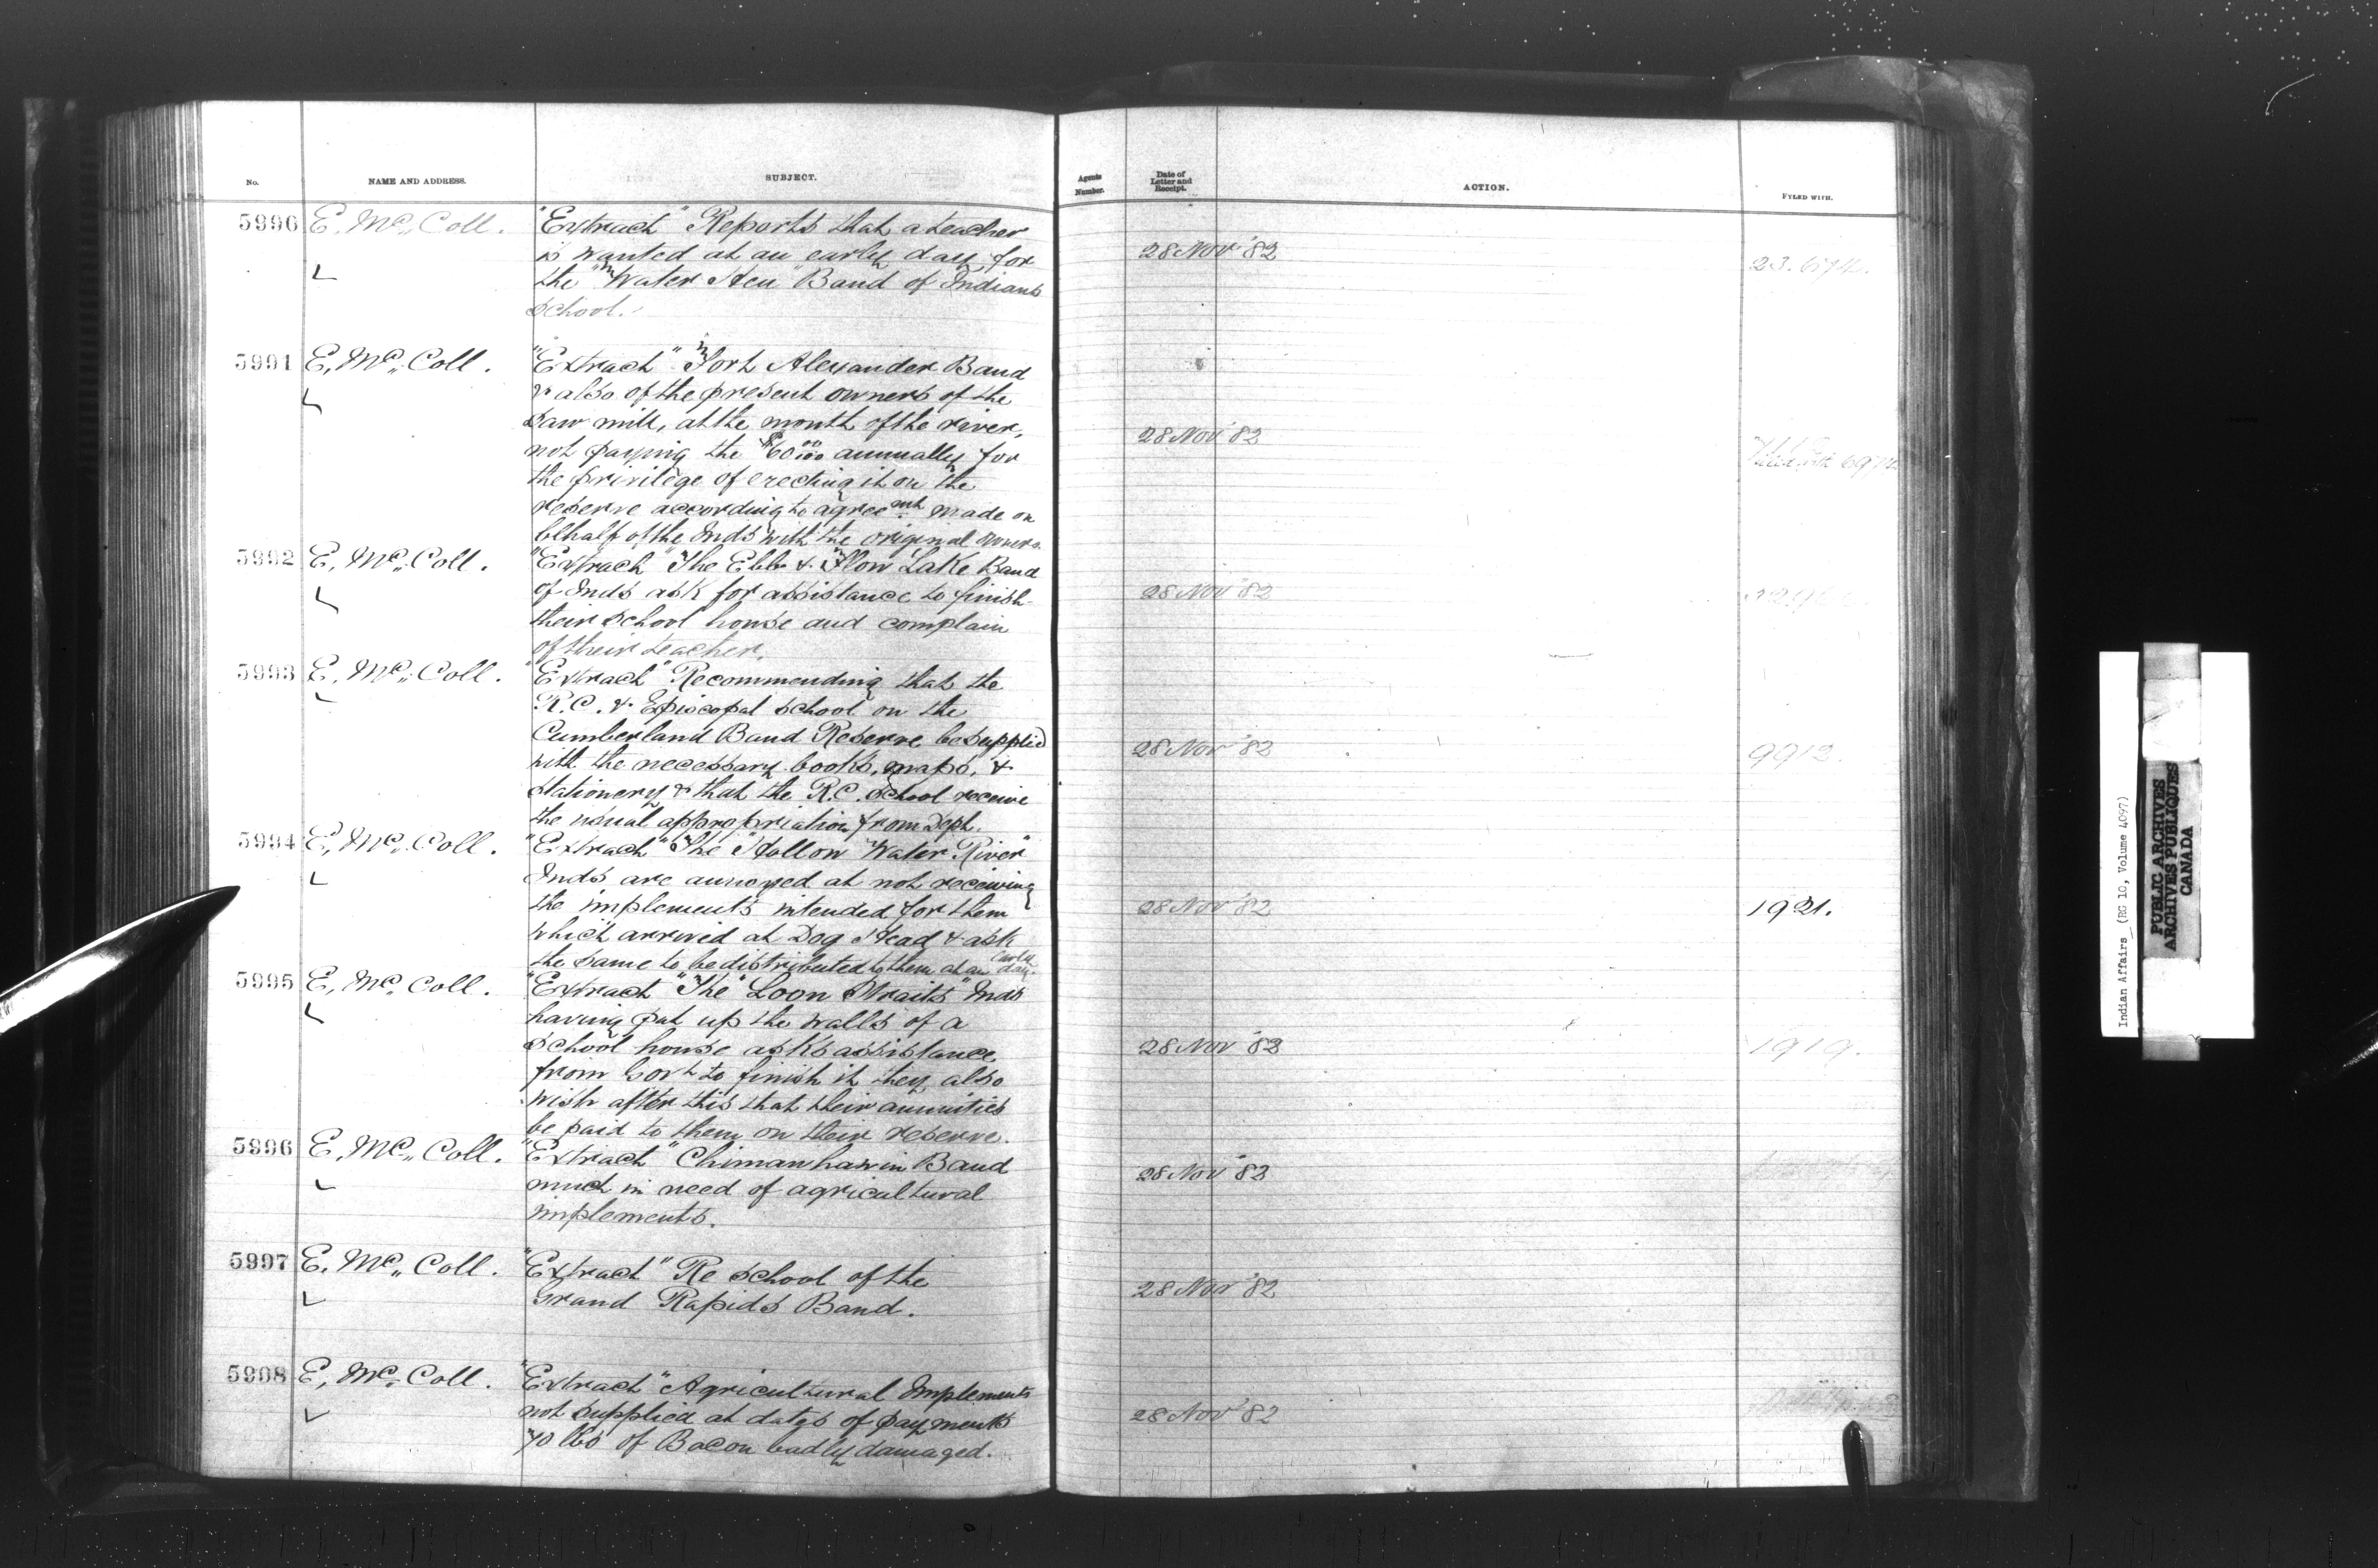 No. NAME AND ADDRESS. SUBJECT. Agents Number. Date of Letter and Receipt. ACTION. FYLED WITH.
5996 E. Mc Coll. "Extract" Reports that a teacher
is wanted at an early day, for
28 Nov '82
the "Water Hen" Band of Indians
school.
5991 E. Mc Coll. "Extract" Fort Alexander Band
& also of the present owners of the
saw mill, at the mouth of the river,
28 Nov '82
not paying the $60 00/100 annually for
the privilege of erecting it on the
reserve according to agreemt made on
behalf of the Inds with the original owners
5992 E. Mc Coll. "Extract" The Ebb & Flow Lake Band
of Inds ask for assistance to finish
28 Nov '82
their school house and complain
of their teacher.
5993 E. Mc Coll. "Extract" Recommending that the
R.C. & Episcopal school on the
Cumberland Band Reserve be supplied
28 Nov '82 9912.
with the necessary books, maps, &
stationery & that the R.C. School receive
the usual appropriation from Dept.
5994 E. Mc Coll. "Extract" The "Hollow Water River"
Inds are annoyed at not receiving
the implements intended for them
28 Nov '82 1921.
which arrived at Dog Head & ask
the same to be distributed to them at an early day.
5995 E. Mc Coll. "Extract" "The "Loon Straits" Inds
having put up the walls of a
school house asks assistance
28 Nov '82 1919.
from Govt to finish it they also
wish after this that their annuities
be paid to them on their reserve.
5996 E. Mc Coll. "Extract" Chimanhawin Band
28 Nov '82
much in need of agricultural
implements.
5997 E. Mc Coll. "Extract" Re school of the
28 Nov '82
Grand Rapids Band.
5998 E. Mc Coll. "Extract" Agricultural Implements
not supplied at dates of payments
28 Nov '82
70 lbs of Bacon badly damaged.
Indian Affairs (RG 10, Volume 4097)
PUBLIC ARCHIVES
ARCHIVES PUBLIQUES
CANADA